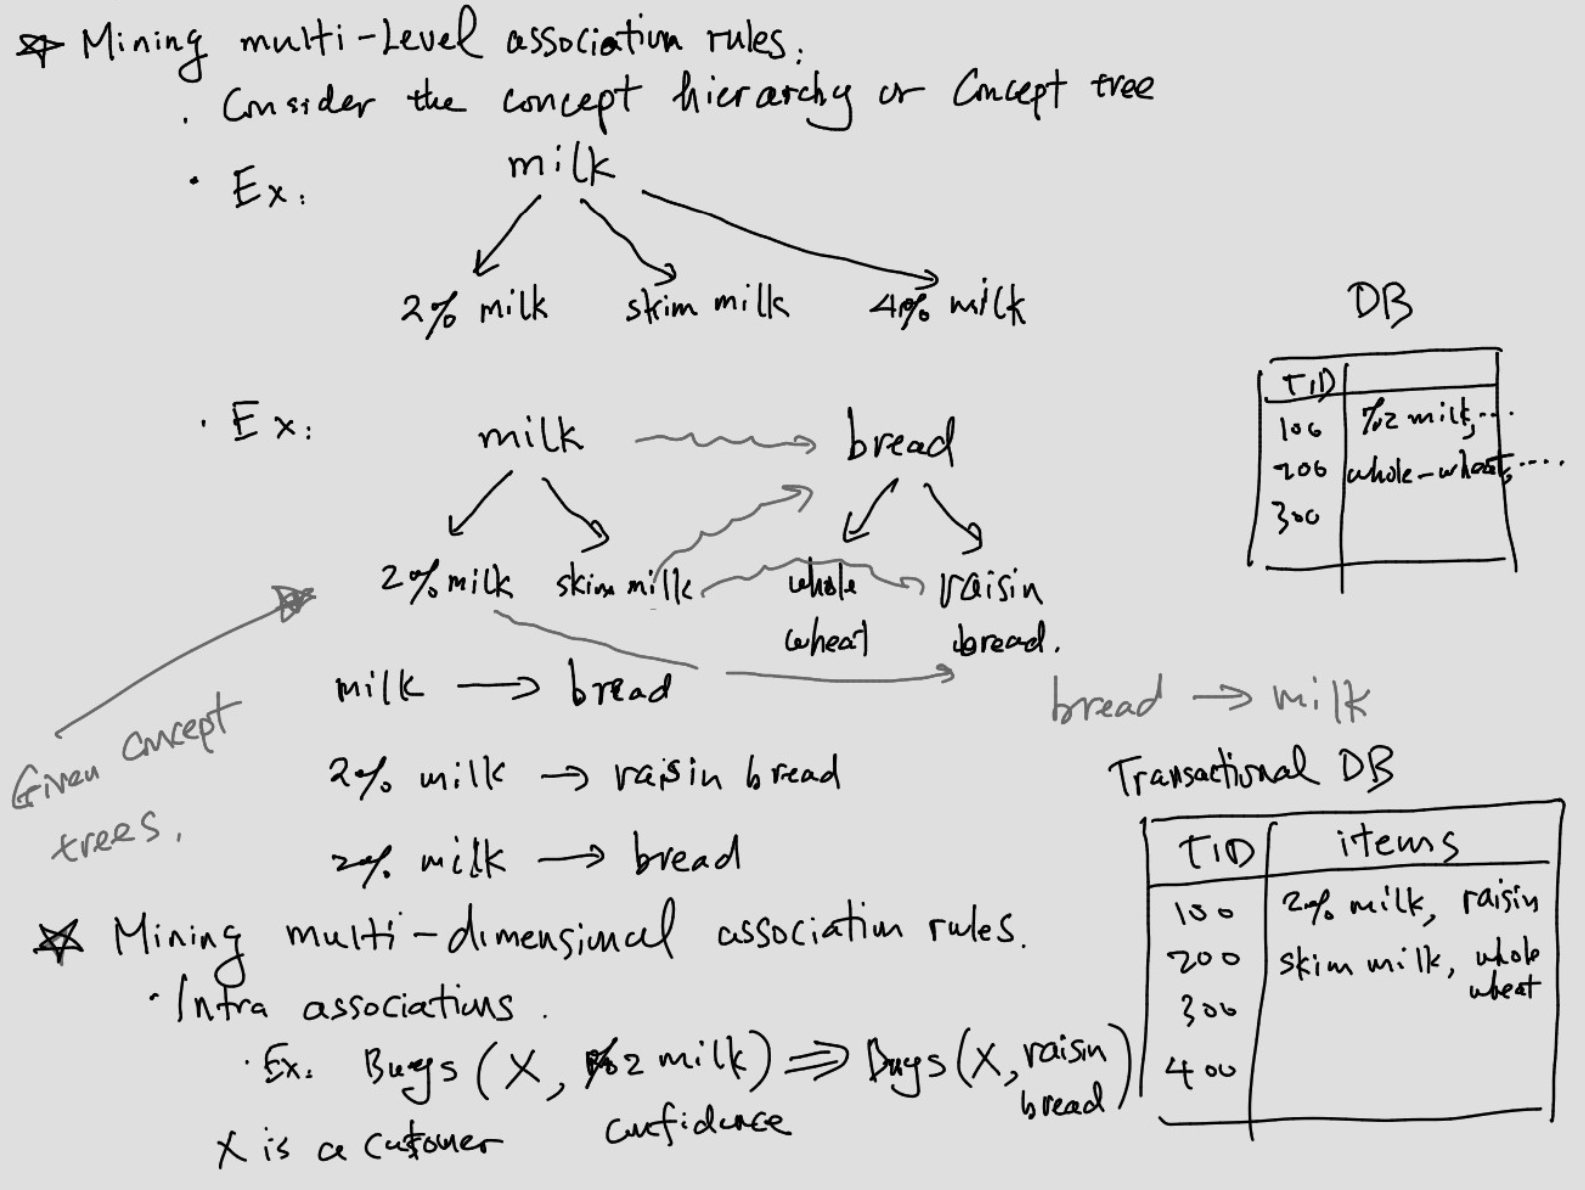 Mining multi-Level association rules.
. Consider the concept hierarchy or Concept tree
milk
· Ex:
2% milk skim milk 4% milk
DB
TID
100 %2 milk,...
200 whole-wheat, ....
300
· Ex:
milk bread
2% milk skim milk whole wheat raisin bread.
milk → bread
bread → milk
Given concept trees.
2% milk → raisin bread
2% milk → bread
Transactional DB
TID items
100 2% milk, raisin
200 skim milk, whole wheat
300
400
Mining multi-dimensional association rules.
· Intra associations.
· Ex. Buys (X, %2 milk) ⇒ Buys (X, raisin bread)
confidence
X is a customer